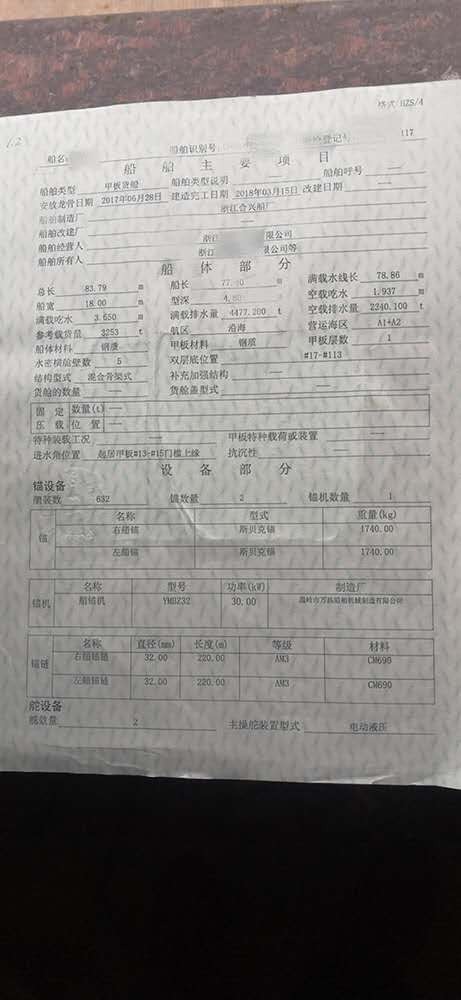 格式:HZS/4
1.2
船名 船舶识别号 登记号 117
船舶主要项目
船舶类型 甲板货船 船舶类型说明 —— 船舶呼号 ——
安放龙骨日期 2017年06月28日 建造完工日期 2018年03月15日 改建日期 ——
船舶制造厂 浙江合兴船厂
船舶改建厂 ——
船舶经营人 浙江 限公司
船舶所有人 浙江 限公司等
船体部分
总长 83.79 m 船长 77.40 m 满载水线长 78.86 m
船宽 18.00 m 型深 m 空载吃水 1.937 m
满载吃水 3.650 m 满载排水量 4477.200 t 空载排水量 2240.100 t
参考载货量 3253 t 航区 沿海 营运海区 A1+A2
船体材料 钢质 甲板材料 钢质 甲板层数 1
水密横舱壁数 5 双层底位置 #17-#113
结构型式 混合骨架式 补充加强结构 ——
货舱的数量 —— 货舱盖型式 ——
固定 数量(t) ——
压载 位置 ——
特种装载工况 —— 甲板特种载荷或装置 ——
进水角位置 起居甲板#13-#15门槛上缘 抗沉性 ——
设备部分
锚设备
舾装数 632 锚数量 2 锚机数量 1
名称 型式 质量(kg)
锚 右艏锚 斯贝克锚 1740.00
左艏锚 斯贝克锚 1740.00
名称 型号 功率(kW) 制造厂
锚机 艏锚机 YMDZ32 30.00 温岭市万扬船舶机械制造有限公司
名称 直径(mm) 长度(m) 等级 材料
锚链 右艏锚链 32.00 220.00 AM3 CM690
左艏锚链 32.00 220.00 AM3 CM690
舵设备
舵数量 2 主操舵装置型式 电动液压